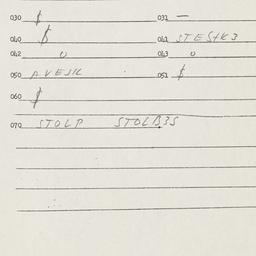 030 $ 031 —
040 $ 041 STESHK3
042 0 043 0
050 AVESIL 051 $
060 $
070 STOLP STOLB3S